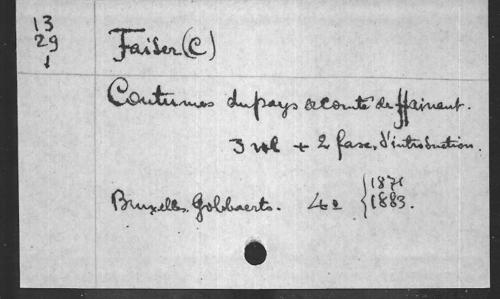 13
29
1
Faider (C)
Coutumes du pays & comté de Hainaut.
3 vol + 2 fasc. d'introduction.
Bruxelles. Gobbaerts. 4o { 1871
1883.